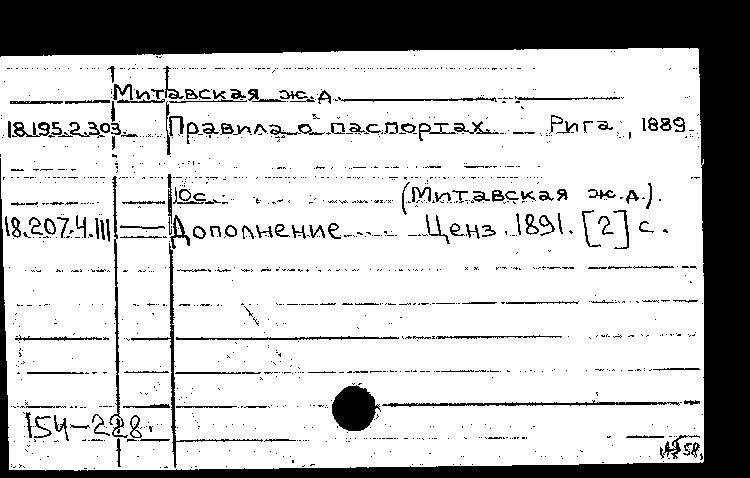 Митавская ж.д.
18.195.2.303 Правила о паспортах. Рига, 1889.
10с. (Митавская ж.д.).
18.207.4.III — Дополнение Ценз. 1891. [2] с.
154-228.